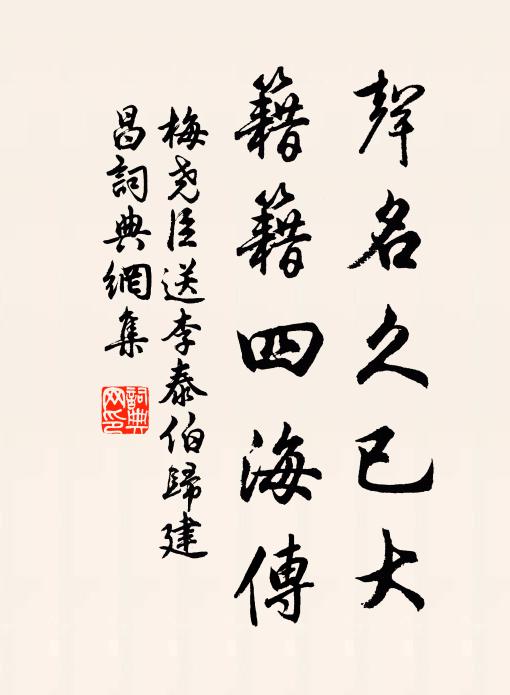 聲名久已大
籍籍四海傳
梅堯臣送李泰伯歸建
昌詞典網集
詞典
网印